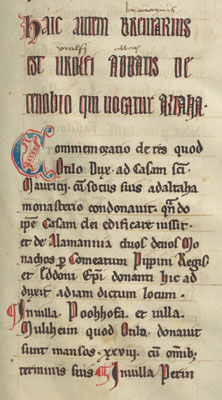 breuiarius
Haic autem breuiarius
urolfi abbas
est urolfi abbatis de
cenobio qui uocatur altaha.
Commemoratio de reb quod
Otilo Dux. ad Casam sci
Mauricij. cum socijs suis adaltaha
monasterio condonauit. qn do
ipe Casam dei edificare iussit.
et de Alamannia duos denos Mo
nachos p Comeatum Pippini Regis
et Eddoni Epi donanti hic ad
duxit adiam dictum locum.
In uilla Poohhofa. et uilla.
Muliheim quod Otilo. donauit
sunt mansos. xxviii. cu omib;
terminis suis. In uilla Perin